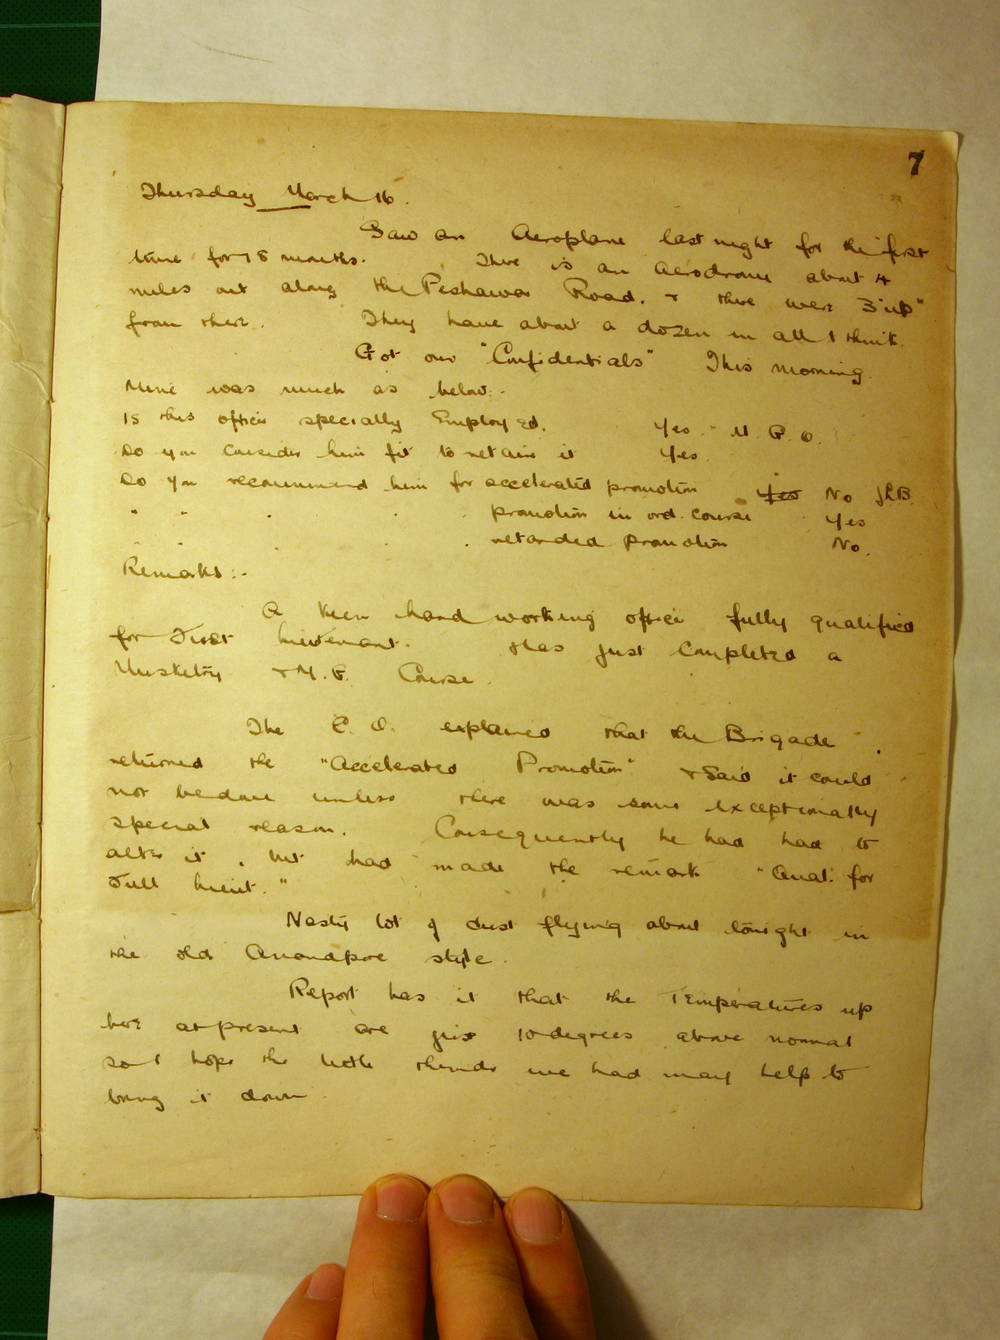 7
Thursday March 16.
Saw an Aeroplane last night for the first
time for 18 months. There is an Aerodrome about 4
miles out along the Peshawar Road. & there were 3 "up"
from there. They have about a dozen in all I think.
Got our "Confidentials" This morning
Mine was much as below:-
Is this officer specially Employed. Yes. M. G. O.
Do you consider him fit to retain it Yes.
Do you recommend him for accelerated promotion Yes No
" " " " promotion in ord. course Yes
" " " " . retarded promotion No.
Remarks:-
A keen hard working officer fully qualified
for First lieutenant. Has just completed a
Musketry & M. G. Course.
The C. O. explained that the Brigade
returned the "Accelerated Promotion" & said it could
not be done unless there was some exceptionally
special reason. Consequently he had had to
alter it, but had made the remark "Qual. for
Full lieut."
Nasty lot of dust flying about tonight in
the old style.
Report has it that the Temperatures up
here at present are just 10 degrees above normal
so I hope the little thunder we had may help to
bring it down